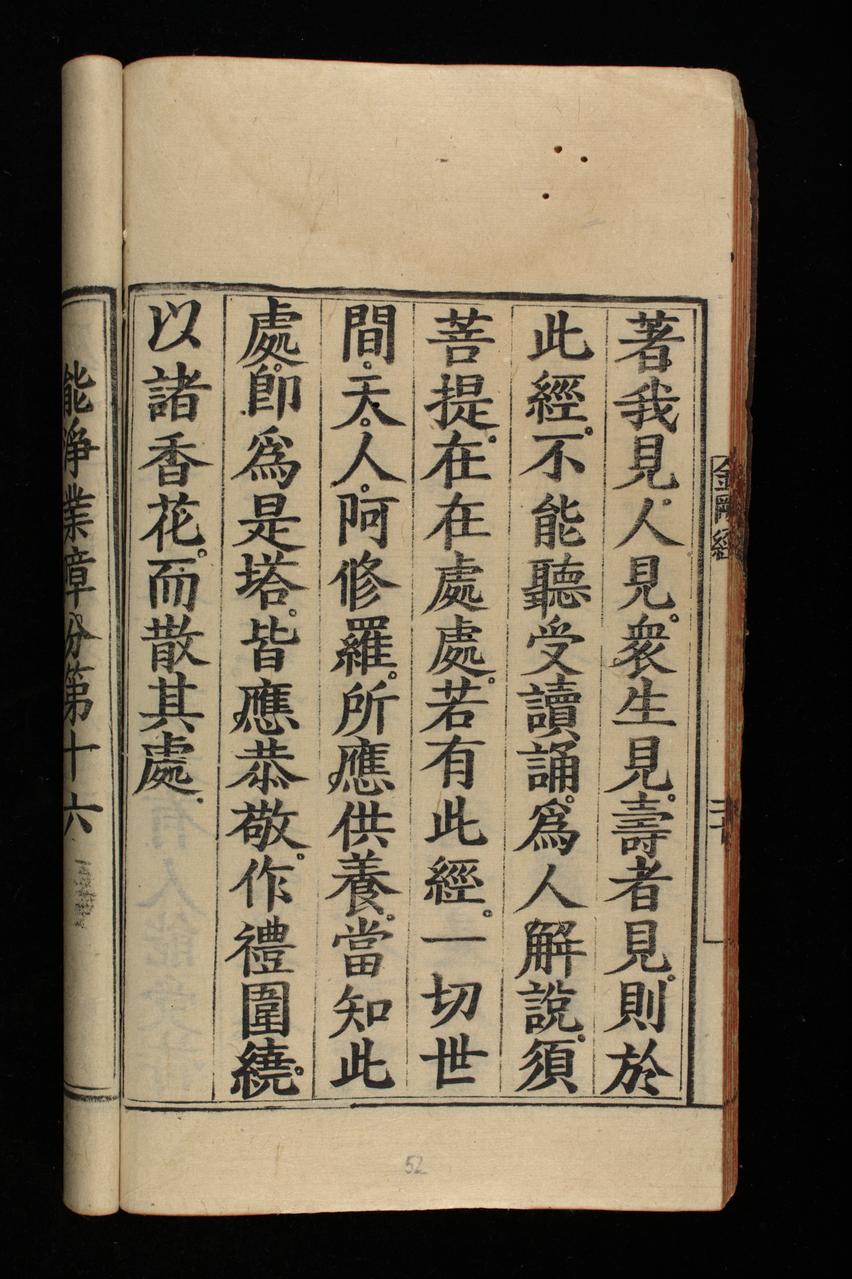 金剛經
著我見。人見。衆生見。壽者見。則於
此經。不能聽受讀誦。爲人解說。須
菩提。在在處處。若有此經。一切世
間。天。人。阿修羅。所應供養。當知此
處。卽爲是塔。皆應恭敬。作禮圍繞。
以諸香花。而散其處。
能淨業障分第十六
52